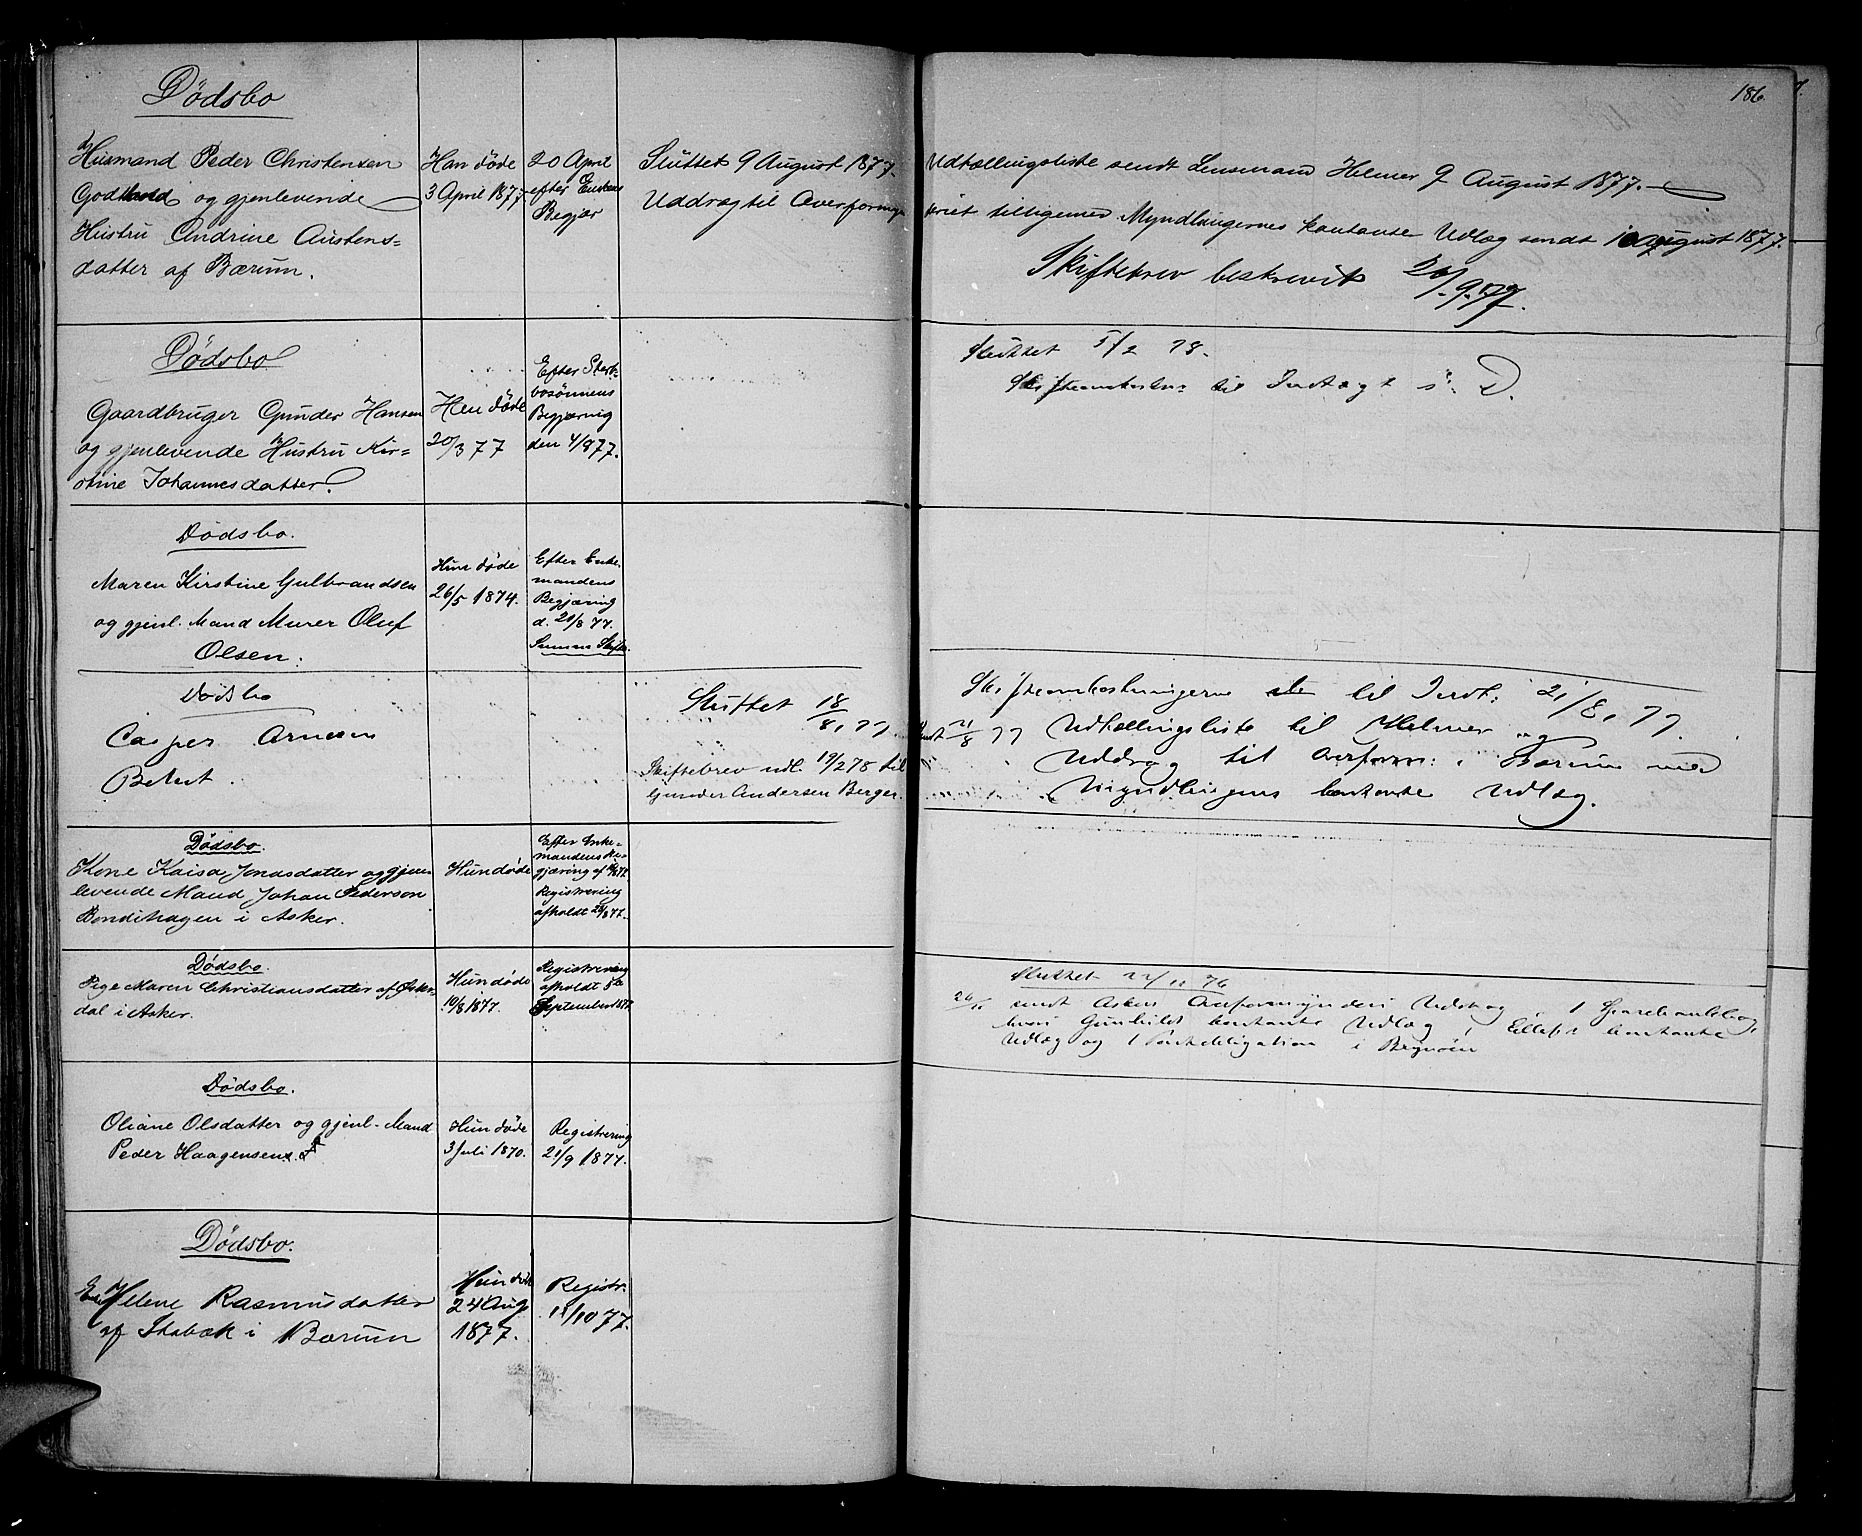 186.
Dødsbo
Husmand Peder Christensen
Godthaab og gjenlevende
Hustru Andrine Austens=
datter af Bærum.
Han døde
3 April 1877
20 April
efter Enkens
Begjær
Sluttet 9 August 1877.
Uddrag til Overformyn
Udtællingsliste sendt Lensmand Helmer 9 August 1877.
deriet tilligemed Myndlingernes kontante Udlæg sendt 10 August 1877.
Skiftebrev beskrevet 20/9.77.
Dødsbo
Gaardbruger Gunder Hansen
og gjenlevende Hustru Kir=
stine Johannesdatter.
Han døde
20/3 77
Efter Sterb-
bosønnens
Begjæring
den 4/8 77.
Sluttet 5/2 78.
til Indtægt s. D.
Dødsbo.
Maren Kirstine Gulbrandsen
og gjenl. Mand Murer Oluf
Olsen.
Hun døde
26/5 1874.
Efter Enke-
mandens
Begjæring
d. 20/8 77.
Dødsbo
Casper Arnesen
Sluttet 18/8, 77
Skiftebrev udl. 19/2 78 til
Gunder Andersen Berger.
Skifteomkostningerne til Indt: 21/8, 77.
Sendt 21/8 77 Udtællingsliste til Helmer og
Uddrag til Overform: i Bærum med
Myndlingens kontante Udlæg.
Dødsbo.
Kone Kaisa Jonasdatter og gjen-
levende Mand Johan Pederson
Bondihagen i Asker.
Hun døde
Efter Enke=
mandens Be-
gjæring af
Registrering
afholdt 28/8 77.
Dødsbo.
Pige Maren Christiansdatter af
dal i Asker.
Hun døde
10/8 1877.
Registrering
afholdt 8de
September 1877
Sluttet
sendt Askers Overformynderi Udskrag 1 Sparebankbog,
hvori Gunhilds kontante Udlæg, kontante
Udlæg og 1 Panteobligation i
Dødsbo.
Oliane Olsdatter og gjenl. Mand
Peder Haagensen.
Hun døde
3 Juli 1870.
Registrering
21/9 1877.
Dødsbo.
Enke Helene Rasmusdatter
af Stabæk i Bærum
Hun døde
24 Aug
1877.
Registr.
11/10 77.